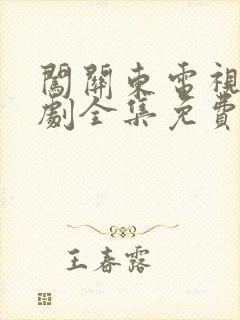 闖關東電視
劇全集免費
王春露